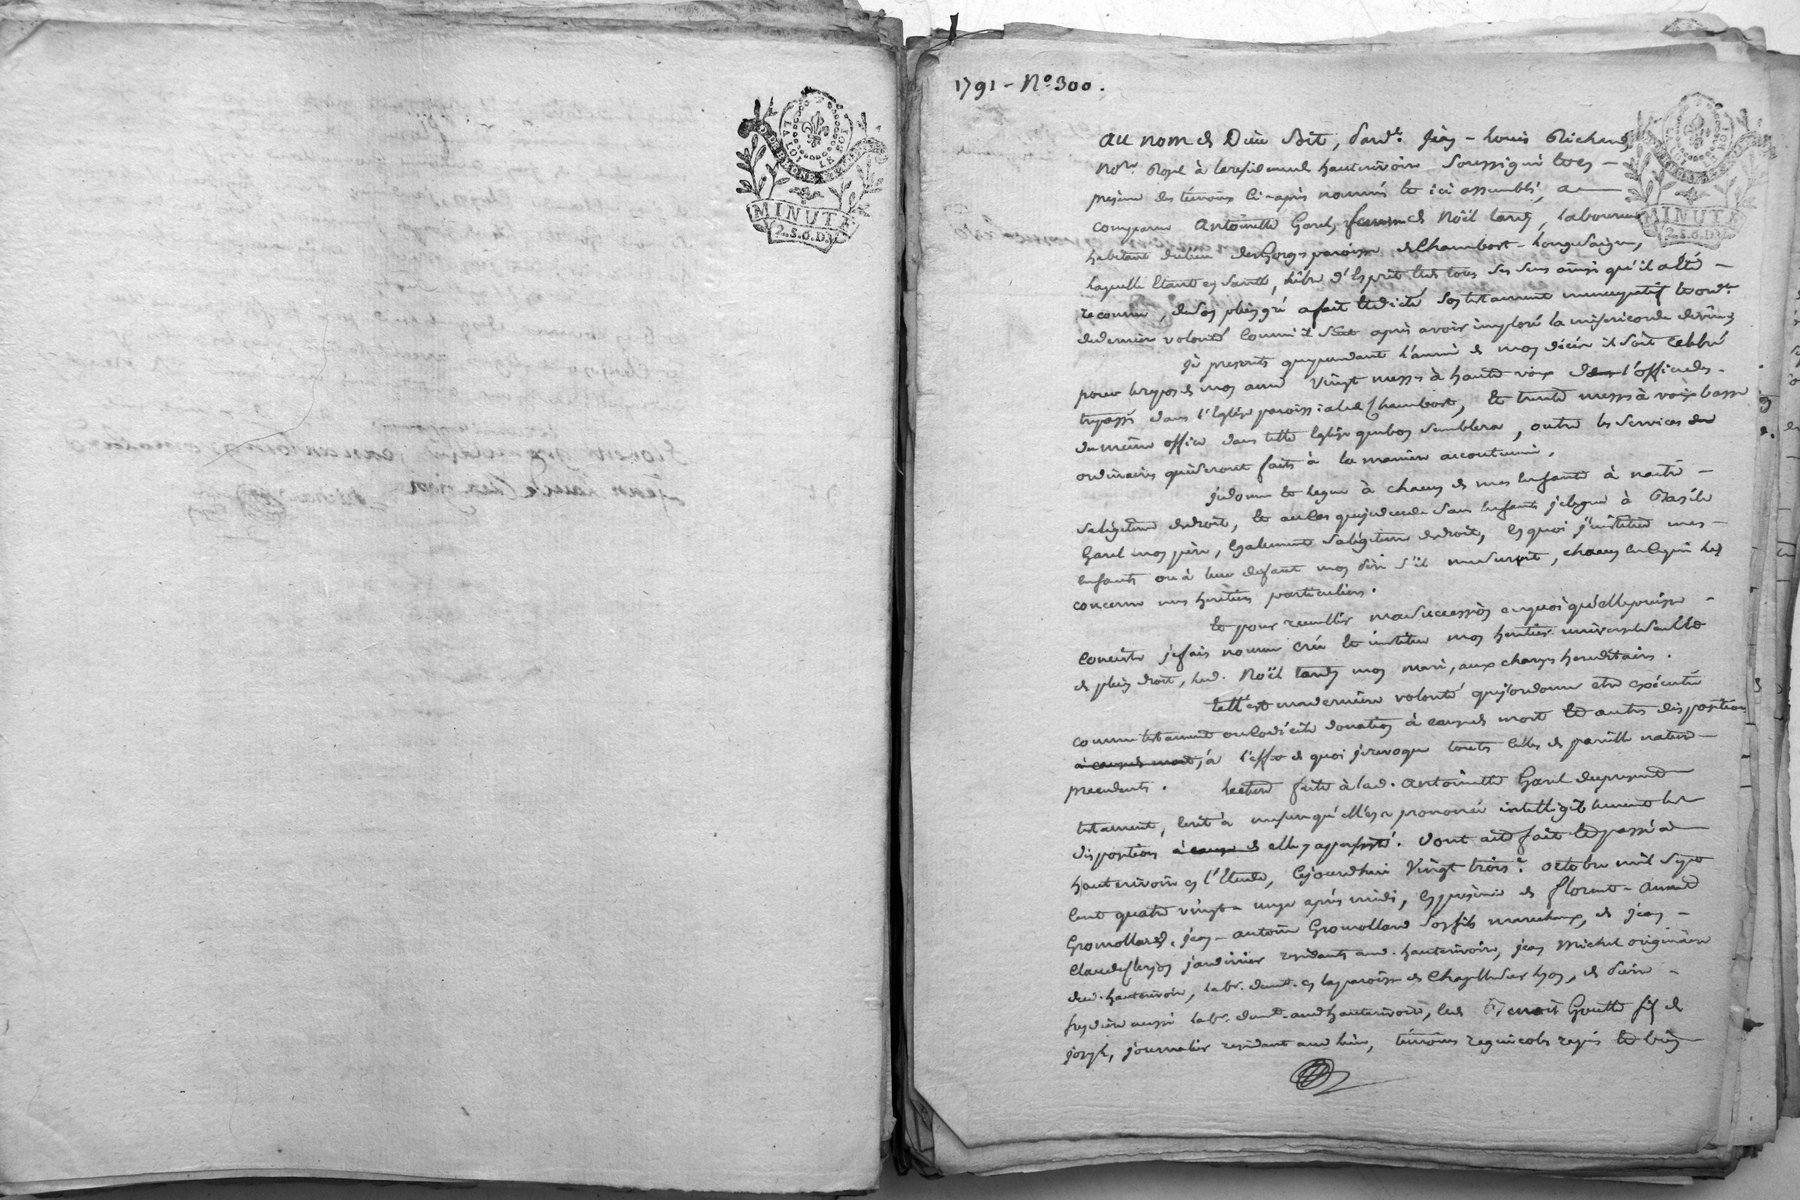 LA LOI LE ROI
RHONE ET LOIRE
MINUTE
2.s.6.D.
1791 - N° 300.
LA LOI LE ROI
MINUTE
2.s.6.D.
au nom de Dieu soit, pard.t jean - louis Richard
No.re Royal à la résidence d'hauterivoire soussigné et en -
présence des témoins ci-après nommés et ici assemblés, a
comparu Antoinette Garel, femme de Noël tardy, laboureur
habitant du lieu des Gorges paroisse de Chambost-Longesaigne,
laquelle étant en santé, libre d'esprit et de tous ses sens ainsi qu'il a été -
reconnu, de son plein gré a fait et dicté son testament nuncupatif et ord.e
de dernière volonté comme il suit après avoir imploré la miséricorde divine
je prescrits que pendant l'année de mon décès il soit célébré
pour le repos de mon ame vingt messes à haute voix de l'office des -
trépassés dans l'église paroissiale de Chambost, et trente messes à voix basse
du même office dans telle église que bon semblera, outre les services
ordinaires qui seront faits à la manière accoutumée.
je donne et legue à chacun de mes enfants à naitre -
sa légitime de droit, et au cas que je decede sans enfants je legue à Basile
Garel mon père, également sa légitime de droit, en quoi j'institue mes -
enfants ou à leur defaut mon père s'il me survit, chacun en ce qui les
concerne mes héritiers particuliers.
et pour recueillir ma succession en quoi qu'elle puisse -
consister je fais nomme crée et institue mon héritier universel seul et
de plein droit, led. Noël tardy mon mari, aux charges hereditaires.
telle est ma dernière volonté que j'ordonne etre exécutée
comme testament ou codicile donation à cause de mort et autre disposition
à cause de mort, à l'effet de quoi je revoque toutes celles de pareille nature -
précédents. Lecture faite à lad. Antoinette Garel du présent
testament, écrit à mesure qu'elle en a prononcé intelligiblement les
dispositions à cause de elle y a persisté. Dont acte fait et passé à
hauterivoire en l'étude, ce jourdhui vingt trois.e octobre mil sept
cent quatre vingt - onze après midi, en présence de florent - amand
Gromollard, jean - antoine Gromollard son fils marechaux, de jean -
Claude jardinier résidants aud. hauterivoire, jean Michel originaire
dud. hauterivoire, lab.r dem.t en la paroisse de Chapelle sur Lyon, de
aussi lab.r dem.t aud hauterivoire, et de Benoit Goutte fils de
joseph, journalier résidant aud lieu, témoins regnicoles requis et bien